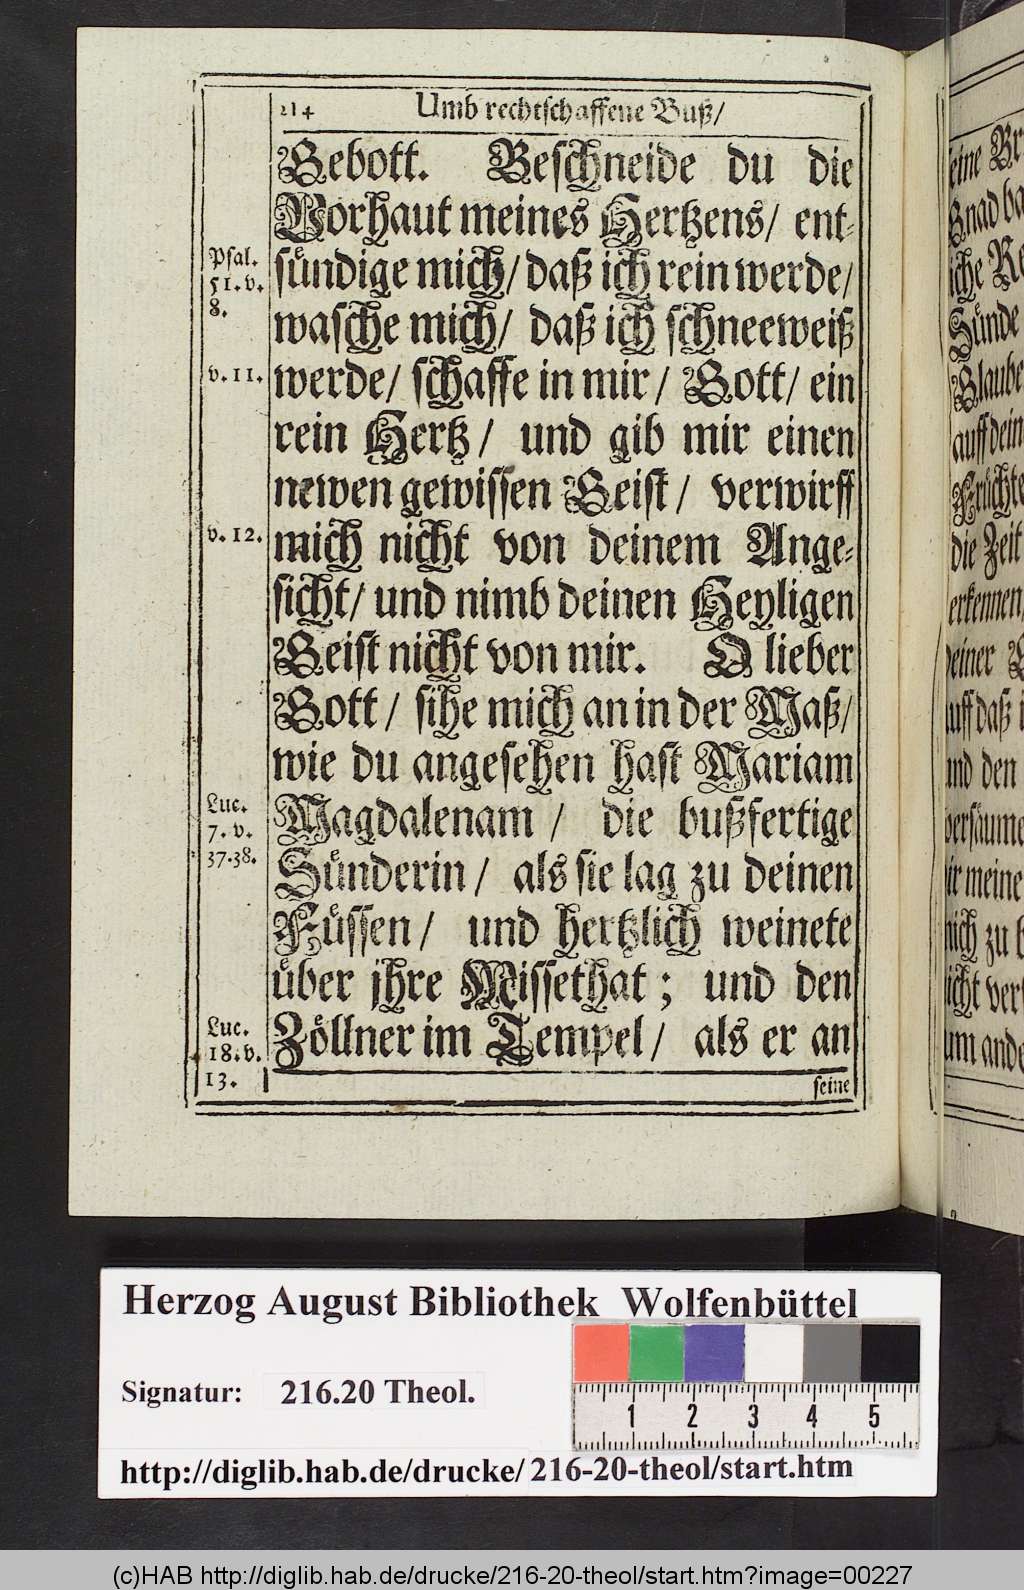 214 Umb rechtschaffene Buß/
Gebott. Beschneide du die
Vorhaut meines Hertzens/ ent-
Psal.
51. v.
8.
sündige mich/ daß ich rein werde/
wasche mich/ daß ich schneeweiß
v. 11.
werde/ schaffe in mir/ Gott/ ein
rein Hertz/ und gib mir einen
newen gewissen Geist/ verwirff
v. 12.
mich nicht von deinem Ange-
sicht/ und nimb deinen Heyligen
Geist nicht von mir. O lieber
Gott/ sihe mich an in der Maß/
wie du angesehen hast Mariam
Luc.
7. v.
37.38.
Magdalenam/ die bußfertige
Sünderin/ als sie lag zu deinen
Füssen/ und hertzlich weinete
über jhre Missethat; und den
Luc.
18. v.
13.
Zöllner im Tempel/ als er an
seine
seine
Gnad
iche
Sünde
Glaube
auff dein
Früchte
die Zeit
erkennen
deiner
auff daß
und den
versäume
meine
mich zu
nicht
um ande
Herzog August Bibliothek Wolfenbüttel
Signatur: 216.20 Theol.
1 2 3 4 5
http://diglib.hab.de/drucke/216-20-theol/start.htm
(c)HAB http://diglib.hab.de/drucke/216-20-theol/start.htm?image=00227